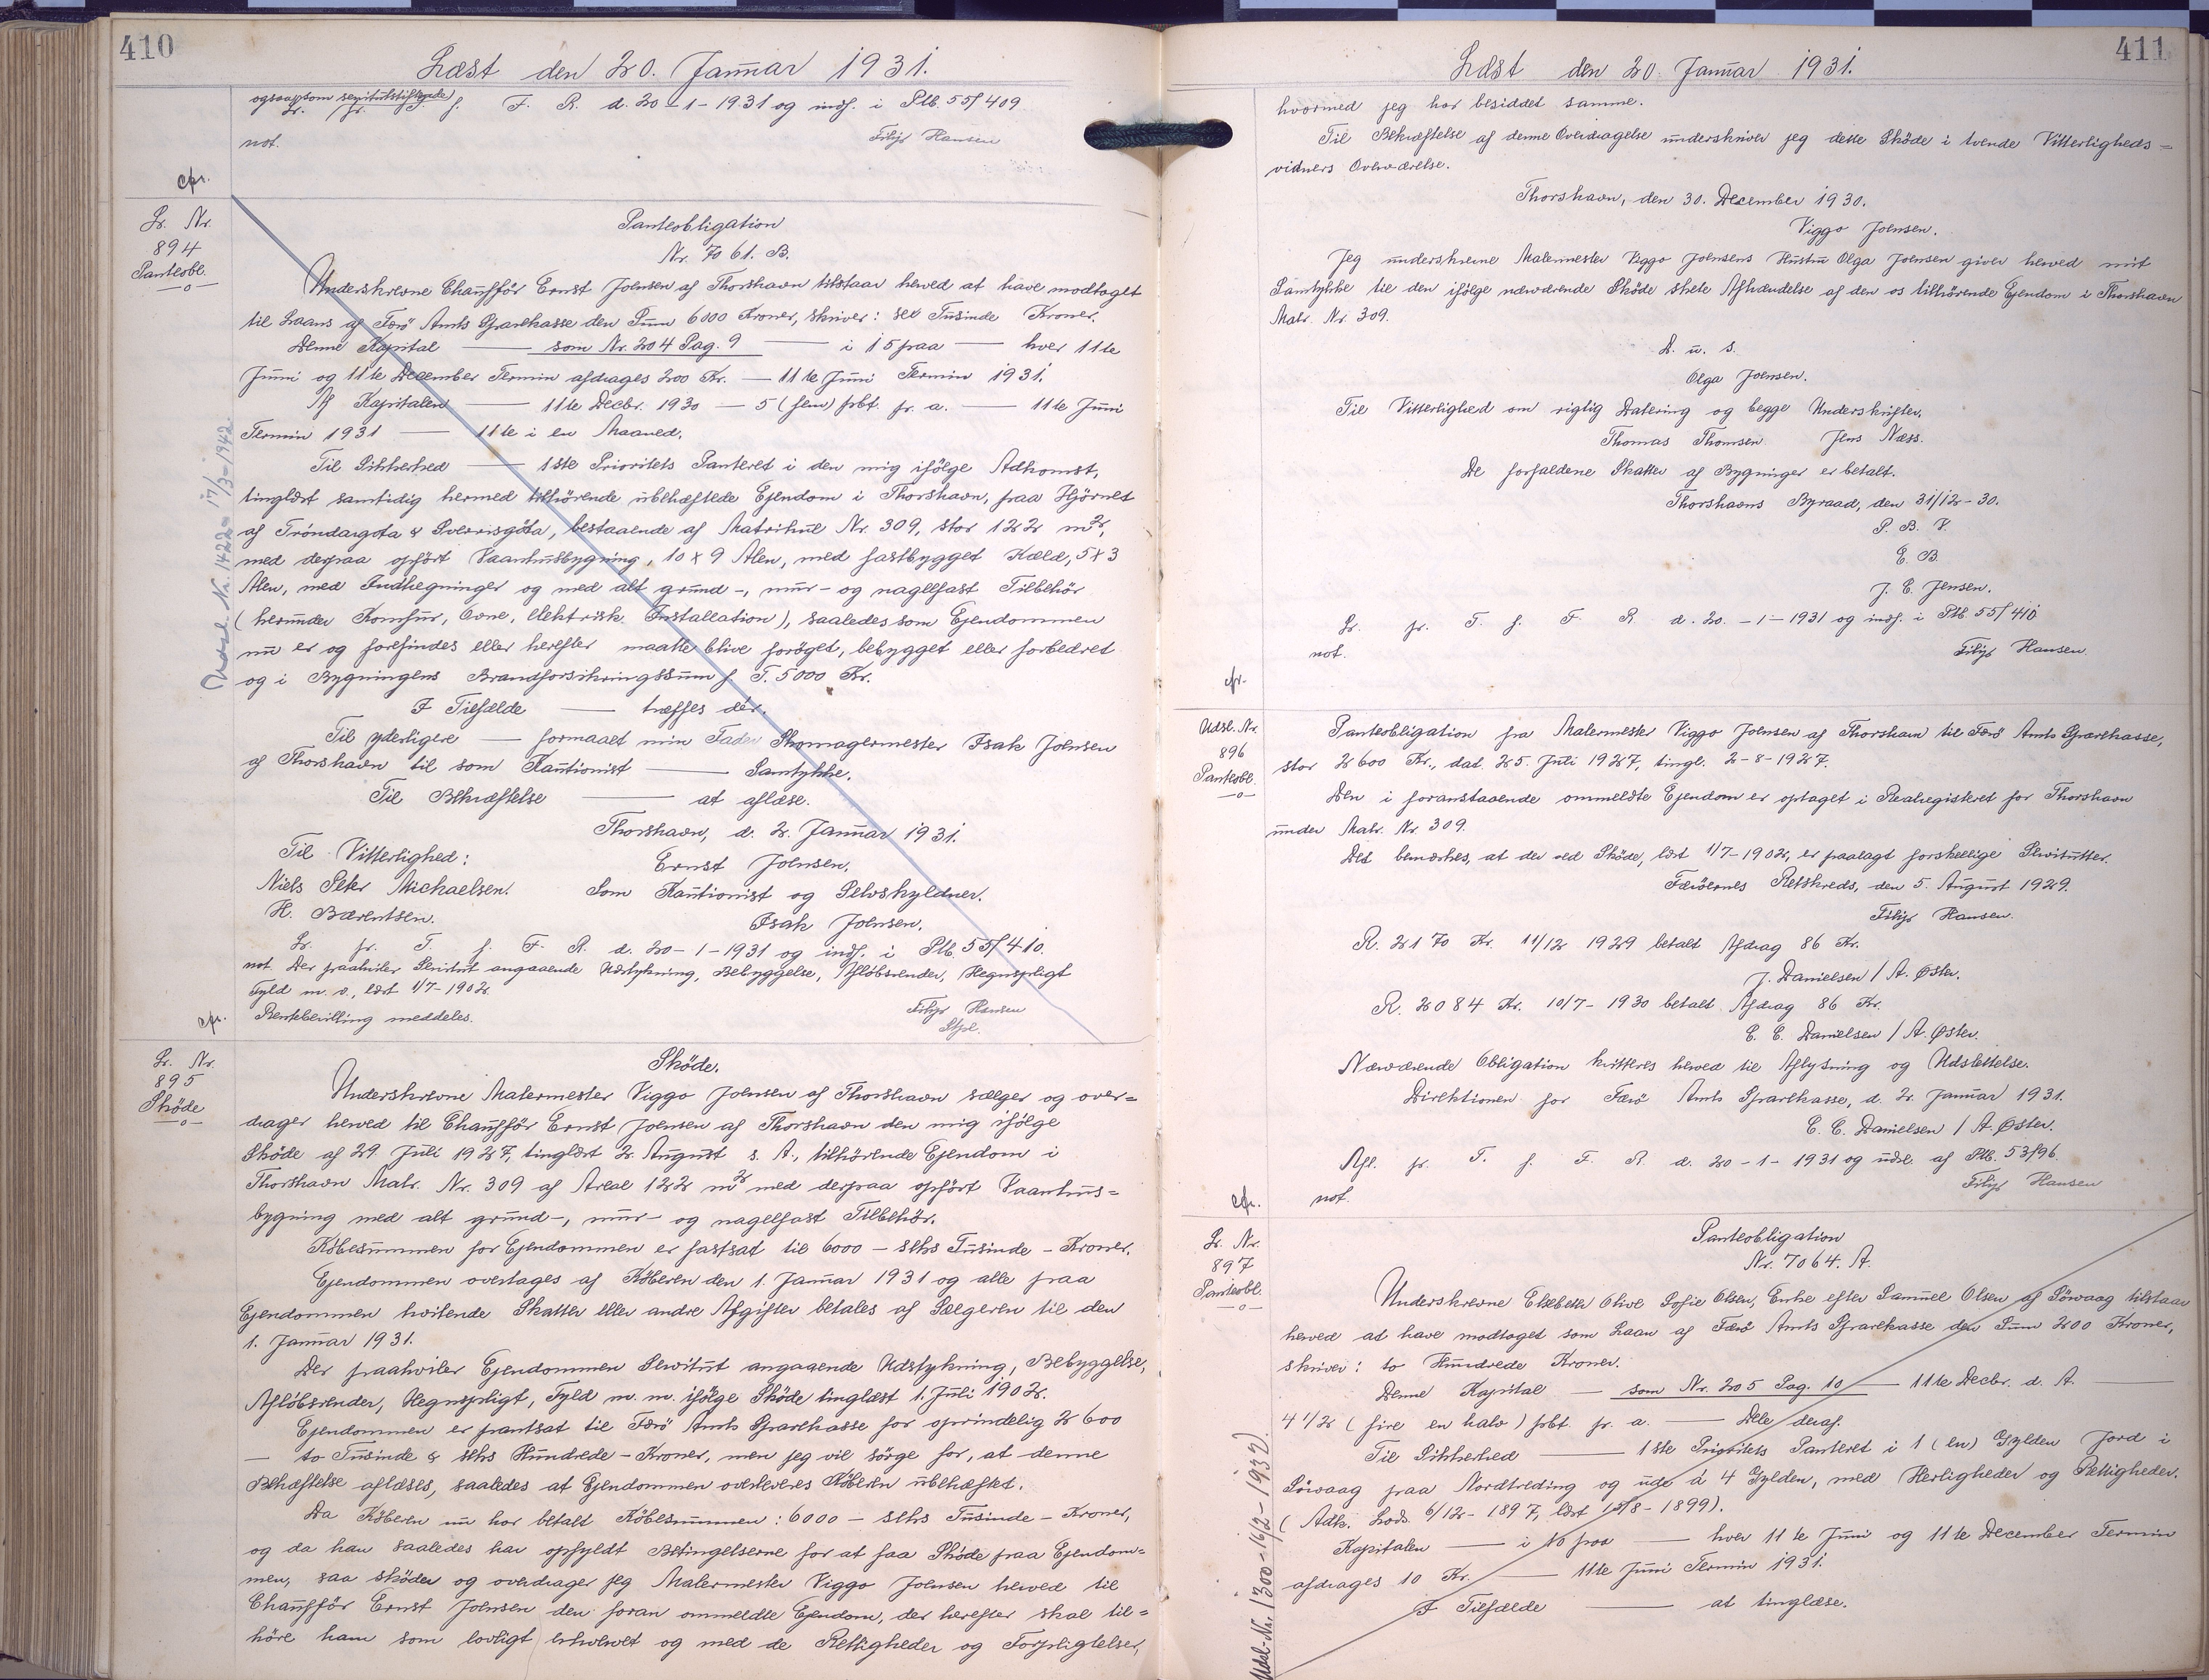 410
Læst den 20. Januar 1931.
ogsaa som
Lr. fr. T. f. F. R. d. 20-1-1931 og indf. i Ptb. 55/409
not.
Filip Hansen
cfr.
Lr. Nr.
894
Panteobl.
Panteobligation
Nr. 7061. B.
Underskrevne Chauffør Ernst Joensen af Thorshavn tilstaar herved at have modtaget
til Laans af Færø Amts Sparekasse den Sum 6000 Kroner, skriver: sex Tusinde Kroner.
Denne Kapital — som Nr. 204 Pag. 9 — i 15 paa — hver 11te
Juni og 11te December Termin afdrages 200 Kr. — 11te Juni Termin 1931.
Af Kapitalen — 11te Decbr. 1930 — 5 (fem) pbt. pr. a. — 11te Juni
Termin 1931 — 11te i en Maaned.
Til Sikkerhed — 1ste Prioritets Panteret i den mig ifølge Adkomst,
tinglæst samtidig hermed tilhørende ubehæftede Ejendom i Thorshavn, paa Hjørnet
af Tróndargøta & Sverrisgøta, bestaaende af Matrikul Nr. 309, stor 122 m²,
med derpaa opført Vaanhusbygning, 10 x 9 Alen, med fastbygget Kæld, 5 x 3
Alen, med Indhegninger og med alt grund-, mur- og nagelfast Tilbehør
(herunder Komfur, Ovne, elektrisk Installation), saaledes som Ejendommen
nu er og forefindes eller herefter maatte blive forøget, bebygget eller forbedret
og i Bygningens Brandforsikringssum f. T. 5000 Kr.
I Tilfælde — træffes dér.
Til yderligere — formaaet min Fader Skomagermester Isak Joensen
af Thorshavn til som Kautionist — Samtykke.
Til Bekræftelse — at aflæse.
Thorshavn, d. 2. Januar 1931.
Til Vitterlighed:
Ernst Joensen.
Niels Peter Michaelsen.
Som Kautionist og Selvskyldner.
H. Bærentsen.
Isak Joensen.
Lr. fr. T. f. F. R. d. 20-1-1931 og indf. i Ptb. 55/410.
not. Der paahviler Servitut angaaende Udstykning, Bebyggelse, Afløbsrender, Hegnspligt
Fyld m. v., læst 1/7-1902.
Filip Hansen
Rentebevilling meddeles.
cfr.
Udsl. Nr. 1422 - 17/3-1942.
Lr. Nr.
895
Skøde
Skøde.
Underskrevne Malermester Viggo Joensen af Thorshavn sælger og over=
drager herved til Chauffør Ernst Joensen af Thorshavn den mig ifølge
Skøde af 29. Juli 1927, tinglæst 2. August s. A., tilhørende Ejendom i
Thorshavn Matr. Nr. 309 af Areal 122 m² med derpaa opført Vaanhus=
bygning med alt grund-, mur- og nagelfast Tilbehør.
Købesummen for Ejendommen er fastsat til 6000 - seks Tusinde - Kroner.
Ejendommen overtages af Køberen den 1. Januar 1931 og alle paa
Ejendommen hvilende Skatter eller andre Afgifter betales af Sælgeren til den
1. Januar 1931.
Der paahviler Ejendommen Servitut angaaende Udstykning, Bebyggelse,
Afløbsrender, Hegnspligt, Fyld m. m. ifølge Skøde tinglæst 1. Juli 1902.
Ejendommen er pantsat til Færø Amts Sparekasse for oprindelig 2600
- to Tusinde & seks Hundrede - Kroner, men jeg vil sørge for, at denne
Behæftelse aflæses, saaledes at Ejendommen overleveres Køberen ubehæftet.
Da Køberen nu har betalt Købesummen: 6000 - seks Tusinde - Kroner,
og da han saaledes har opfyldt Betingelserne for at faa Skøde paa Ejendom=
men, saa skøder og overdrager jeg Malermester Viggo Joensen herved til
Chauffør Ernst Joensen den foran ommeldte Ejendom, der herefter skal til=
høre ham som lovligt erhvervet og med de Rettigheder og Forpligtelser,
411
Læst den 20. Januar 1931.
hvormed jeg har besiddet samme.
Til Bekræftelse af denne Overdragelse underskriver jeg dette Skøde i tvende Vitterligheds=
vidners Overværelse.
Thorshavn, den 30. December 1930.
Viggo Joensen.
Jeg underskrevne Malermester Viggo Joensens Hustru Olga Joensen giver herved mit
Samtykke til den ifølge nærværende Skøde skete Afhændelse af den os tilhørende Ejendom i Thorshavn
Matr. Nr. 309.
D. u. s.
Olga Joensen.
Til Vitterlighed om rigtig Datering og begge Underskrifter.
Thomas Thomsen. Jens Næss.
De forfaldene Skatter af Bygninger er betalt.
Thorshavns Byraad, den 31/12-30.
P. B. V.
E. B.
J. E. Jensen.
Lr. fr. T. f. F. R. d. 20.-1-1931 og indf. i Ptb. 55/410
not.
Filip Hansen
cfr.
Udsl. Nr.
896
Panteobl.
Panteobligation fra Malermester Viggo Joensen af Thorshavn til Færø Amts Sparekasse,
stor 2600 Kr., dat. 25. Juli 1927, tingl. 2-8-1927.
Den i foranstaaende ommeldte Ejendom er optaget i Realregisteret for Thorshavn
under Matr. Nr. 309.
Det bemærkes, at der ved Skøde, læst 1/7-1902, er paalagt forskellige Servitutter.
Færøernes Retskreds, den 5. August 1929.
Filip Hansen.
R. 2170 Kr. 11/12 1929 betalt Afdrag 86 Kr.
J. Danielsen / A. Øster.
R. 2084 Kr. 10/7-1930 betalt Afdrag 86 Kr.
C. C. Danielsen / A. Øster.
Nærværende Obligation kvitteres herved til Aflysning og Udslettelse.
Direktionen for Færø Amts Sparekasse, d. 2. Januar 1931.
C. C. Danielsen / A. Øster.
Afl. fr. T. f. F. R. d. 20-1-1931 og udsl. af Ptb. 53/96.
not.
Filip Hansen
cfr.
Lr. Nr.
897
Panteobl.
Panteobligation
Nr. 7064. A.
Underskrevne Elsebeth Olive Sofie Olsen, Enke efter Samuel Olsen af Sörvaag tilstaar
herved at have modtaget som Laan af Færø Amts Sparekasse den Sum 200 Kroner,
skriver: to Hundrede Kroner.
Denne Kapital — som Nr. 205 Pag. 10 — 11te Decbr. d. A. —
4 1/2 (fire en halv) pbt. pr. a. — Dele deraf.
Til Sikkerhed — 1ste Prioritets Panteret i 1 (en) Gylden Jord i
Sörvaag paa Nordtreding og ude á 4 Gylden, med Herligheder og Rettigheder.
(Adk. Lods. 6/12-1897, læst /8-1899).
Kapitalen — i 10 paa — hver 11te Juni og 11te December Termin
afdrages 10 Kr. — 11te Juni Termin 1931.
I Tilfælde — at tinglæse.
Udsl. Nr. 1300 - 16/2-1932.